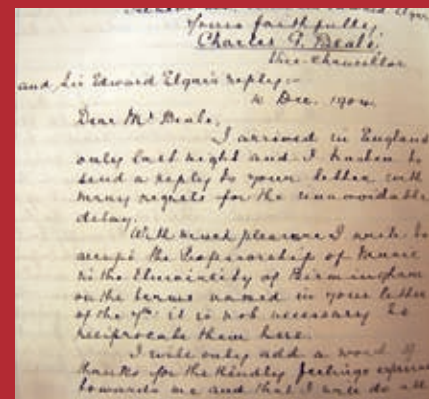 Yours faithfully
Charles G. Beale
Vice-Chancellor
and Sir Edward Elgar's reply:-
10 Dec. 1904.
Dear Mr Beale,
I arrived in England
only last night and I hasten to
send a reply to your letter with
many regrets for the unavoidable
delay.
With much pleasure I write to
accept the Professorship of Music
in the University of Birmingham
on the terms named in your letter
of the 7th: it is not necessary to
reciprocate them here.
I will only add a word of
thanks for the kindly feelings
towards me and that I will do all